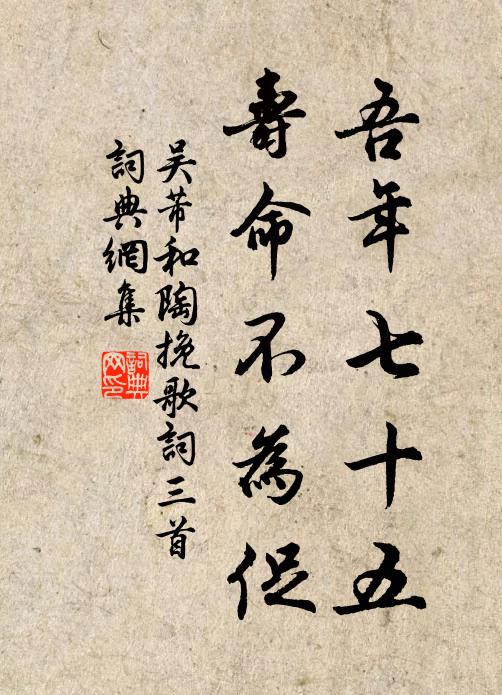 吾年七十五
壽命不為促
吳芾和陶挽歌詞三首
詞典網集
詞典
网印